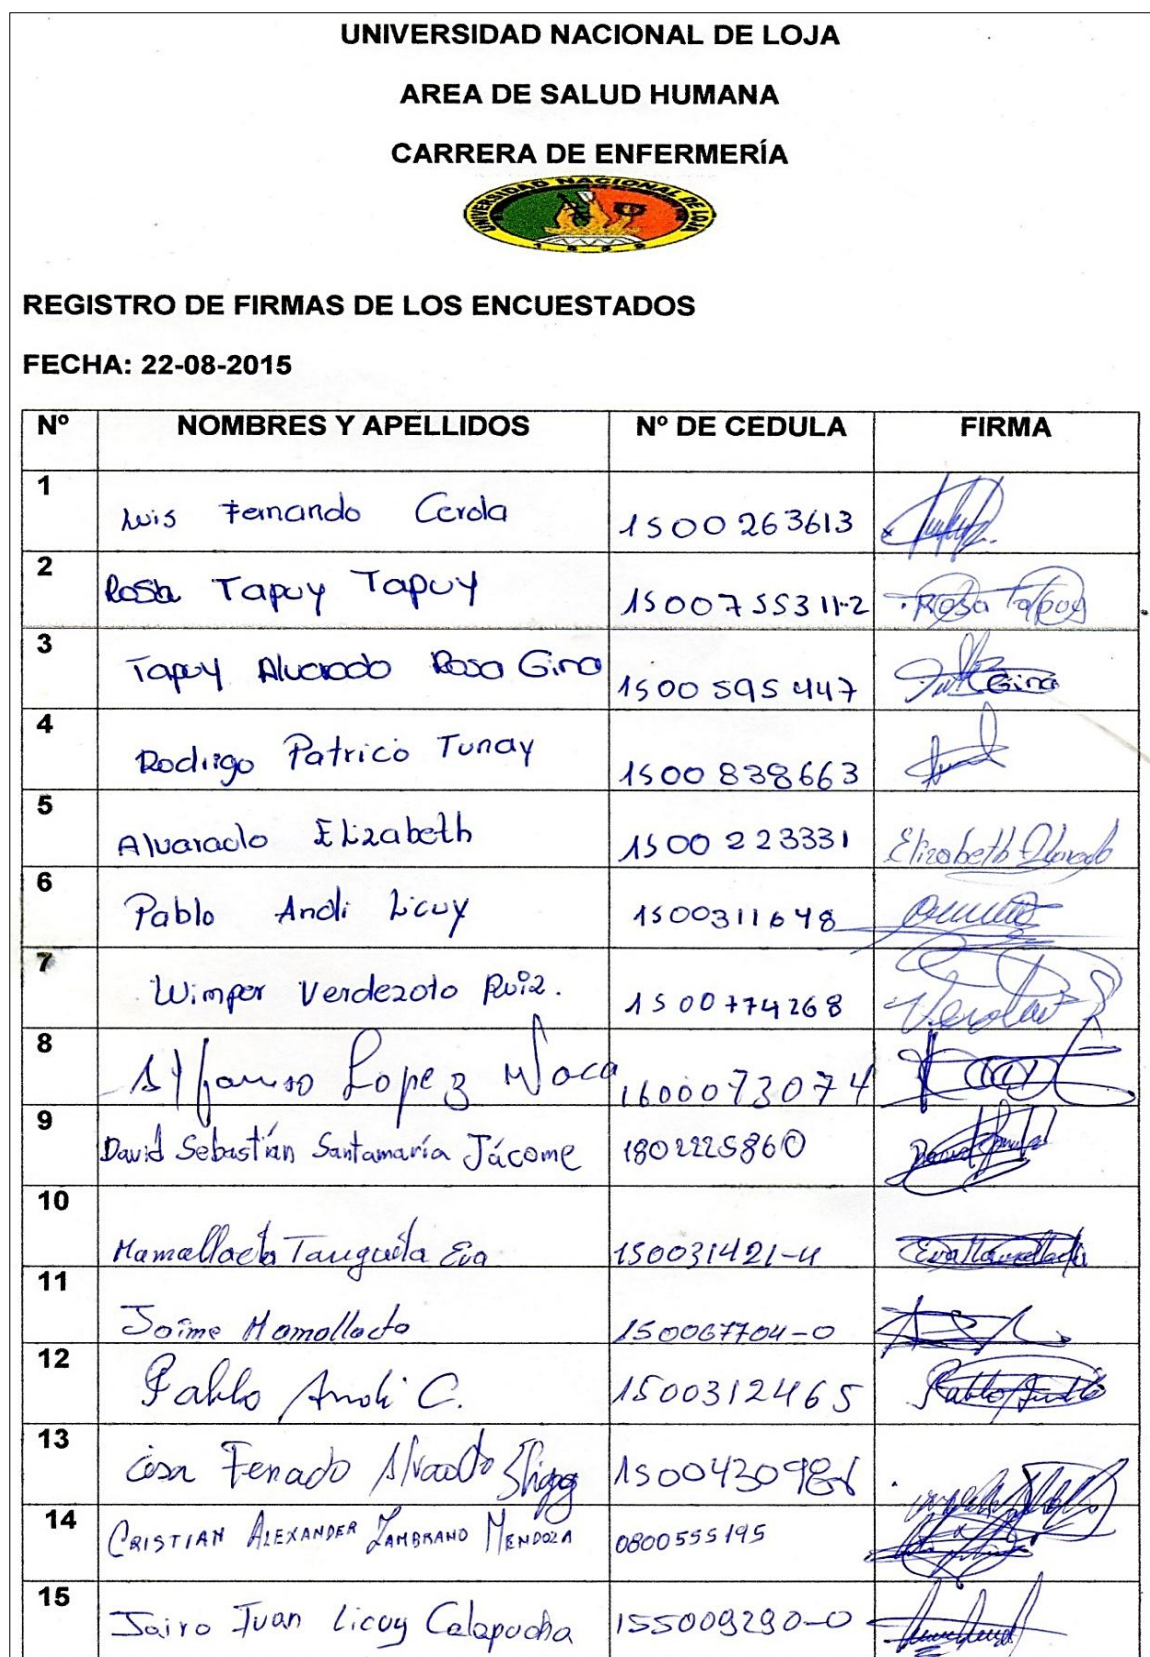 UNIVERSIDAD NACIONAL DE LOJA
AREA DE SALUD HUMANA
CARRERA DE ENFERMERÍA
UNIVERSIDAD NACIONAL DE LOJA
1859
REGISTRO DE FIRMAS DE LOS ENCUESTADOS
FECHA: 22-08-2015
Nº NOMBRES Y APELLIDOS Nº DE CEDULA FIRMA
1 Luis Fernando Cerda 1500263613
2 Rosa Tapuy Tapuy 1500755311-2 Rosa Tapuy
3 Tapuy Alvarado Rosa Gina 1500595447 Gina
4 Rodrigo Patrico Tunay 1500838663
5 Alvarado Elizabeth 1500223331 Elizabeth Alvarado
6 Pablo Andi Licuy 1500311648
7 Wimper Verdezoto Ruiz. 1500774268
8 Lopez 1600073074
9 David Sebastián Santamaría Jácome 1802225860 David
10 Mamallacta Tanguila Eva 150031421-4 Eva Mamallacta
11 Jaime Mamallacta 150067704-0
12 Pablo Andi C. 1500312465 Pablo Andi
13 Fenado
14 CRISTIAN ALEXANDER ZAMBRANO MENDOZA 0800555195
15 Jairo Juan Licuy Calapucha 155009290-0